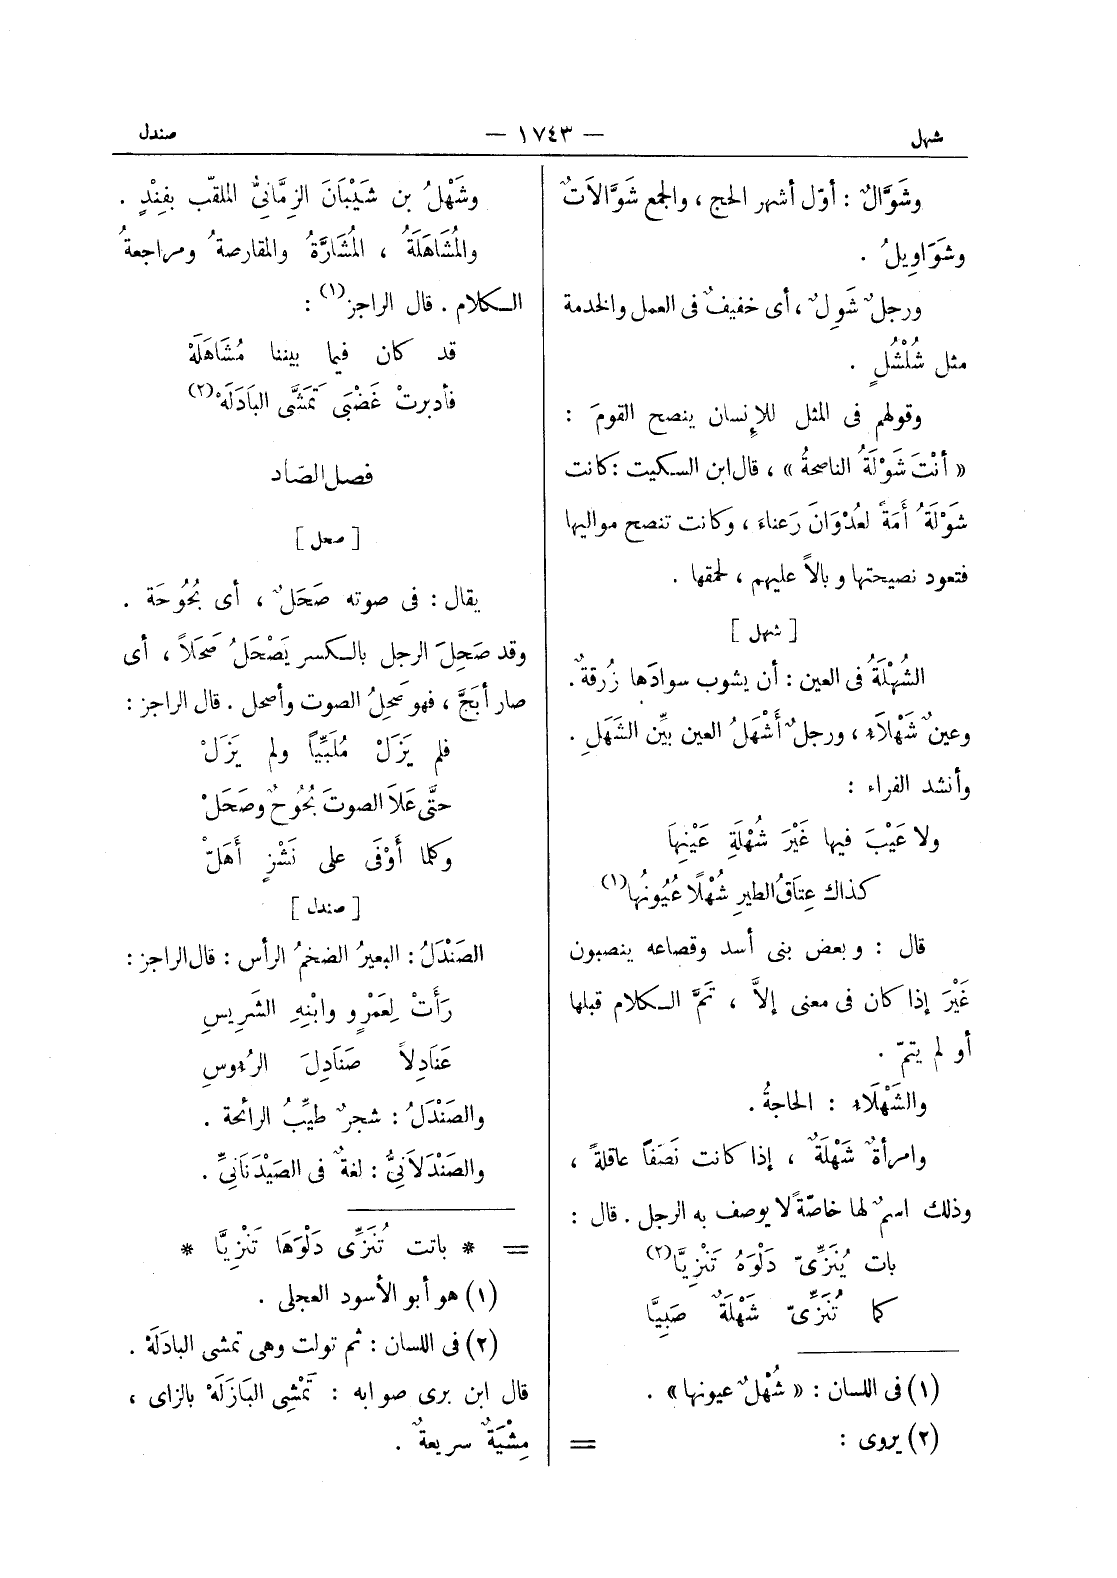 شهل — ١٧٤٣ — صندل
وشَوَّالٌ : أوّل أشهر الحج ، والجمع شَوَّالَاتٌ
وشَوَاوِيلُ .
ورجلٌ شَوِلٌ ، أى خفيفٌ فى العمل والخدمة
مثل شُلْشُلٍ .
وقولهم فى المثل للإنسان ينصح القومَ :
« أنْتَ شَوْلَةُ الناصحةُ » ، قال ابن السكيت : كانت
شَوْلَةُ أَمَةً لعُدْوَانَ رَعناءَ ، وكانت تنصح مواليها
فتعود نصيحتها وبالاً عليهم ، لحمقها .
[ شهل ]
الشُهْلَةُ فى العين : أن يشوب سوادَها زُرقةٌ .
وعينٌ شَهْلَاءُ ، ورجلٌ أَشْهَلُ العين بيِّن الشَهَلِ .
وأنشد الفراء :
ولا عَيْبَ فيها غَيْرَ شُهْلَةِ عَيْنِهَا
كذاك عِتاَقُ الطيرِ شُهْلًا عُيُونُها (١)
قال : وبعض بنى أسد وقصاعه ينصبون
غَيْرَ إذا كان فى معنى إلاَّ ، تَمَّ الكلام قبلها
أو لم يتمّ .
والشَهْلَاءُ : الحاجةُ .
وامرأةٌ شَهْلَةٌ ، إذا كانت نَصَفاً عاقلةً ،
وذلك اسمٌ لها خاصّةً لا يوصف به الرجل . قال :
بات يُنَزِّىّ دَلْوَهُ تَنْزِيَّا (٢)
كما تُنَزِّىّ شَهْلَةٌ صَبِيَّا
(١) فى اللسان : « شُهْلٌ عيونها » .
(٢) يروى : =
وشَهْلُ بن شَيْبَانَ الزِمَّانِىُّ الملقّب بفِنْدٍ .
والمُشَاهَلَةُ ، المُشَارَّةُ والمقارصةُ ومراجعةُ
الكلام . قال الراجز (١) :
قد كان فيما بيننا مُشَاهَلَهْ
فأدبرتْ غَضْبَى تَمَشَّى البَادَلَهْ (٢)
فصل الصّاد
[ صحل ]
يقال : فى صوته صَحَلٌ ، أى بُحُوحَة .
وقد صَحِلَ الرجل بالكسر يَصْحَلُ صَحَلاً ، أى
صار أَبَحَّ ، فهو صَحِلُ الصوت وأصحل . قال الراجز :
فلم يَزَلْ مُلَبِّياً ولم يَزَلْ
حتَّى عَلاَ الصوتَ بُحُوحٌ وصَحَلْ
وكلما أَوْفَى على نَشْزٍ أَهَلّْ
[ صندل ]
الصَنْدَلُ : البعيرُ الضخمُ الرأس : قال الراجز :
رَأَتْ لِعَمْرٍو وابْنِهِ الشَرِيسِ
عَنَادِلاً صَنَادِلَ الرُءوسِ
والصَنْدَلُ : شجرٌ طيِّبُ الرائحة .
والصَنْدَلاَنِىُّ : لغةٌ فى الصَيْدَنَانِىِّ .
= * باتت تُنَزِّى دَلْوَهَا تَنْزِيَّا *
(١) هو أبو الأسود العجلى .
(٢) فى اللسان : ثم تولت وهى تمشى البادَلَهْ .
قال ابن برى صوابه : تَمْشِى البَازَلَهْ بالزاى ،
مِشْيَةٌ سريعةٌ .